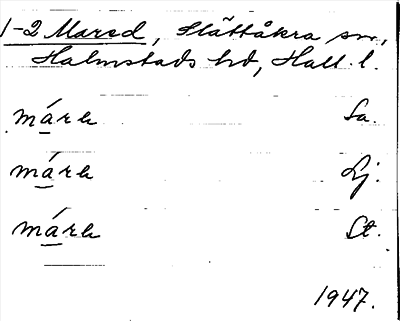 1-2 Mared, Slättåkra sn,
Halmstads hd, Hall. l.
márɐ Sa.
márɐ Lj.
márɐ St.
1947.